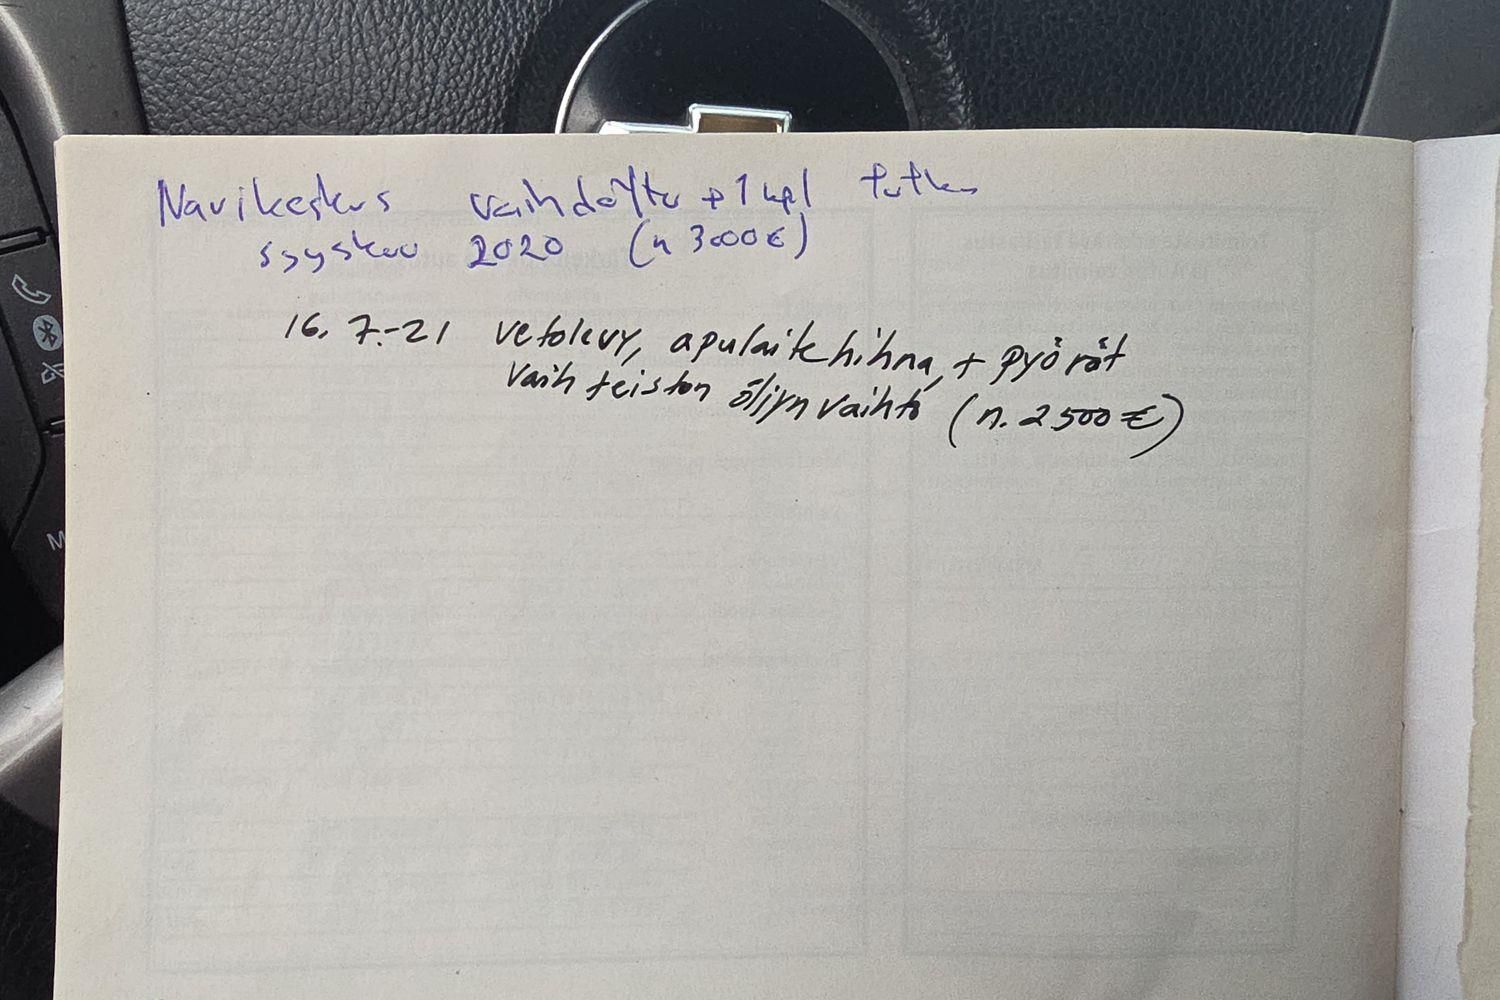 Navikeskus vaihdettu + 1 kpl tutka
syyskuu 2020 (n 3000€)
16. 7.-21 vetolevy, apulaitehihna, + pyörät
vaihteiston öljyn vaihto (n. 2500€)
M